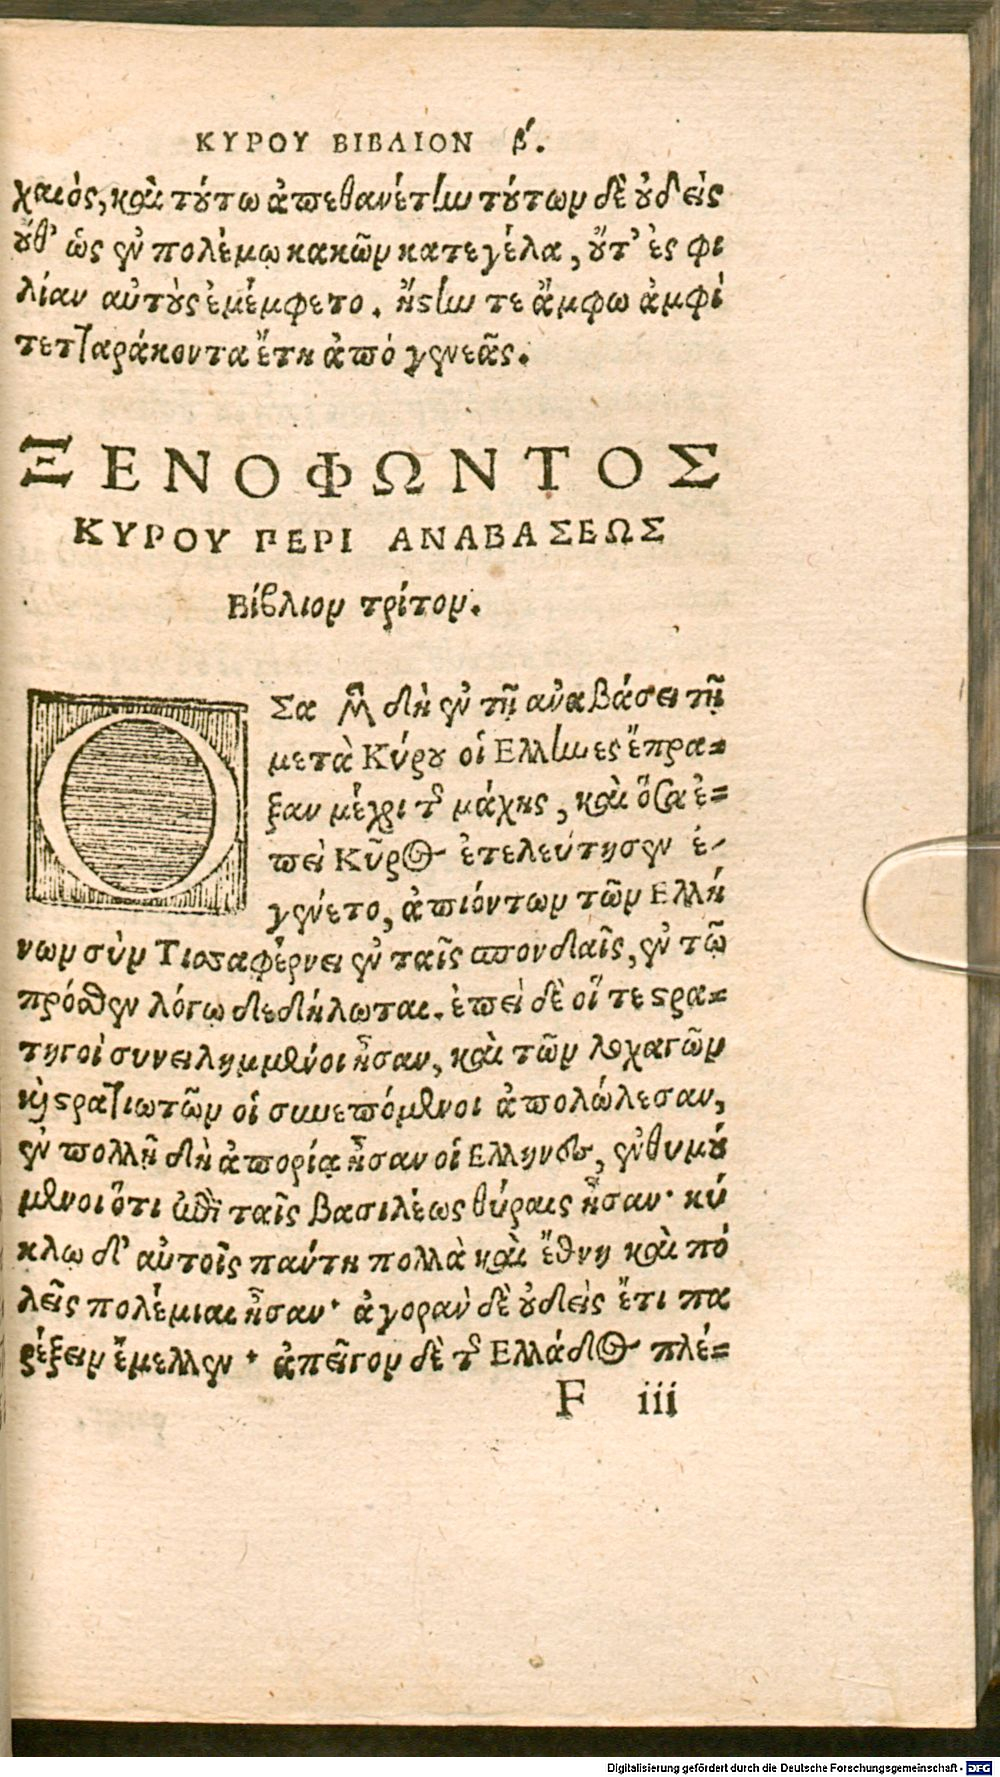 ΚΥΡΟΥ ΒΙΒΛΙΟΝ β'.
χαιὸς, καὶ τούτω ἀπεθανέτην τούτων δὲ οὐδεὶς
οὔθ' ὡς ἐν πολέμῳ κακῶν κατεγέλα, οὔτ' ἐς φι
λίαν αὐτοὺς ἐμέμφετο. ἤστην τε ἄμφω ἀμφὶ
τετταράκοντα ἔτη ἀπό γενεᾶς.
ΞΕΝΟΦΩΝΤΟΣ
ΚΥΡΟΥ ΠΕΡΙ ΑΝΑΒΑΣΕΩΣ
Βίβλιον τρίτον.
ΟΣα μὲν δὴ ἐν τῇ ἀναβάσει τῇ
μετὰ Κύρου οἱ Ελληνες ἔπρα-
ξαν μέχρι τῆς μάχης, καὶ ὅσα ἐ-
πεὶ Κῦρος ἐτελεύτησεν ἐ-
γένετο, ἀπιόντων τῶν Ελλή
νων σὺν Τισσαφέρνει ἐν ταῖς σπονδαῖς, ἐν τῷ
πρόσθεν λόγῳ δεδήλωται. ἐπεὶ δὲ οἵ τε στρα-
τηγοὶ συνειλημμένοι ἦσαν, καὶ τῶν λοχαγῶν
καὶ στρατιωτῶν οἱ συνεπόμενοι ἀπολώλεσαν,
ἐν πολλῇ δὴ ἀπορίᾳ ἦσαν οἱ Ελληνες, ἐνθυμού
μενοι ὅτι ἐπὶ ταῖς βασιλέως θύραις ἦσαν· κύ
κλῳ δ' αὐτοῖς πάντη πολλὰ καὶ ἔθνη καὶ πό
λεῖς πολέμιαι ἦσαν· ἀγορὰν δὲ οὐδεὶς ἔτι πα
ρέξειν ἔμελλεν· ἀπεῖχον δὲ τῆς Ελλάδος πλέ-
F iii
Digitalisierung gefördert durch die Deutsche Forschungsgemeinschaft - DFG